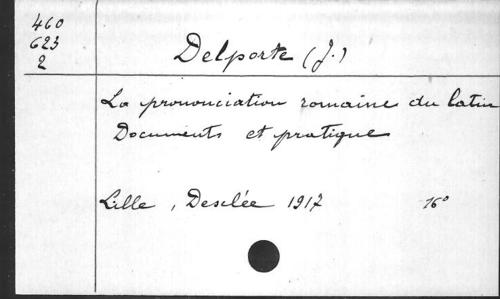 460
623
2
Delporte (J.)
La prononciation romaine du latin
Documents et pratique
Lille, Desclée 1917 16°